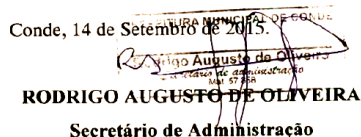 Conde, 14 de Setembro de 2015.
PREFEITURA MUNICIPAL DE CONDE
Rodrigo Augusto de Oliveira
Secretário de administração
Mat. 57
RODRIGO AUGUSTO DE OLIVEIRA
Secretário de Administração